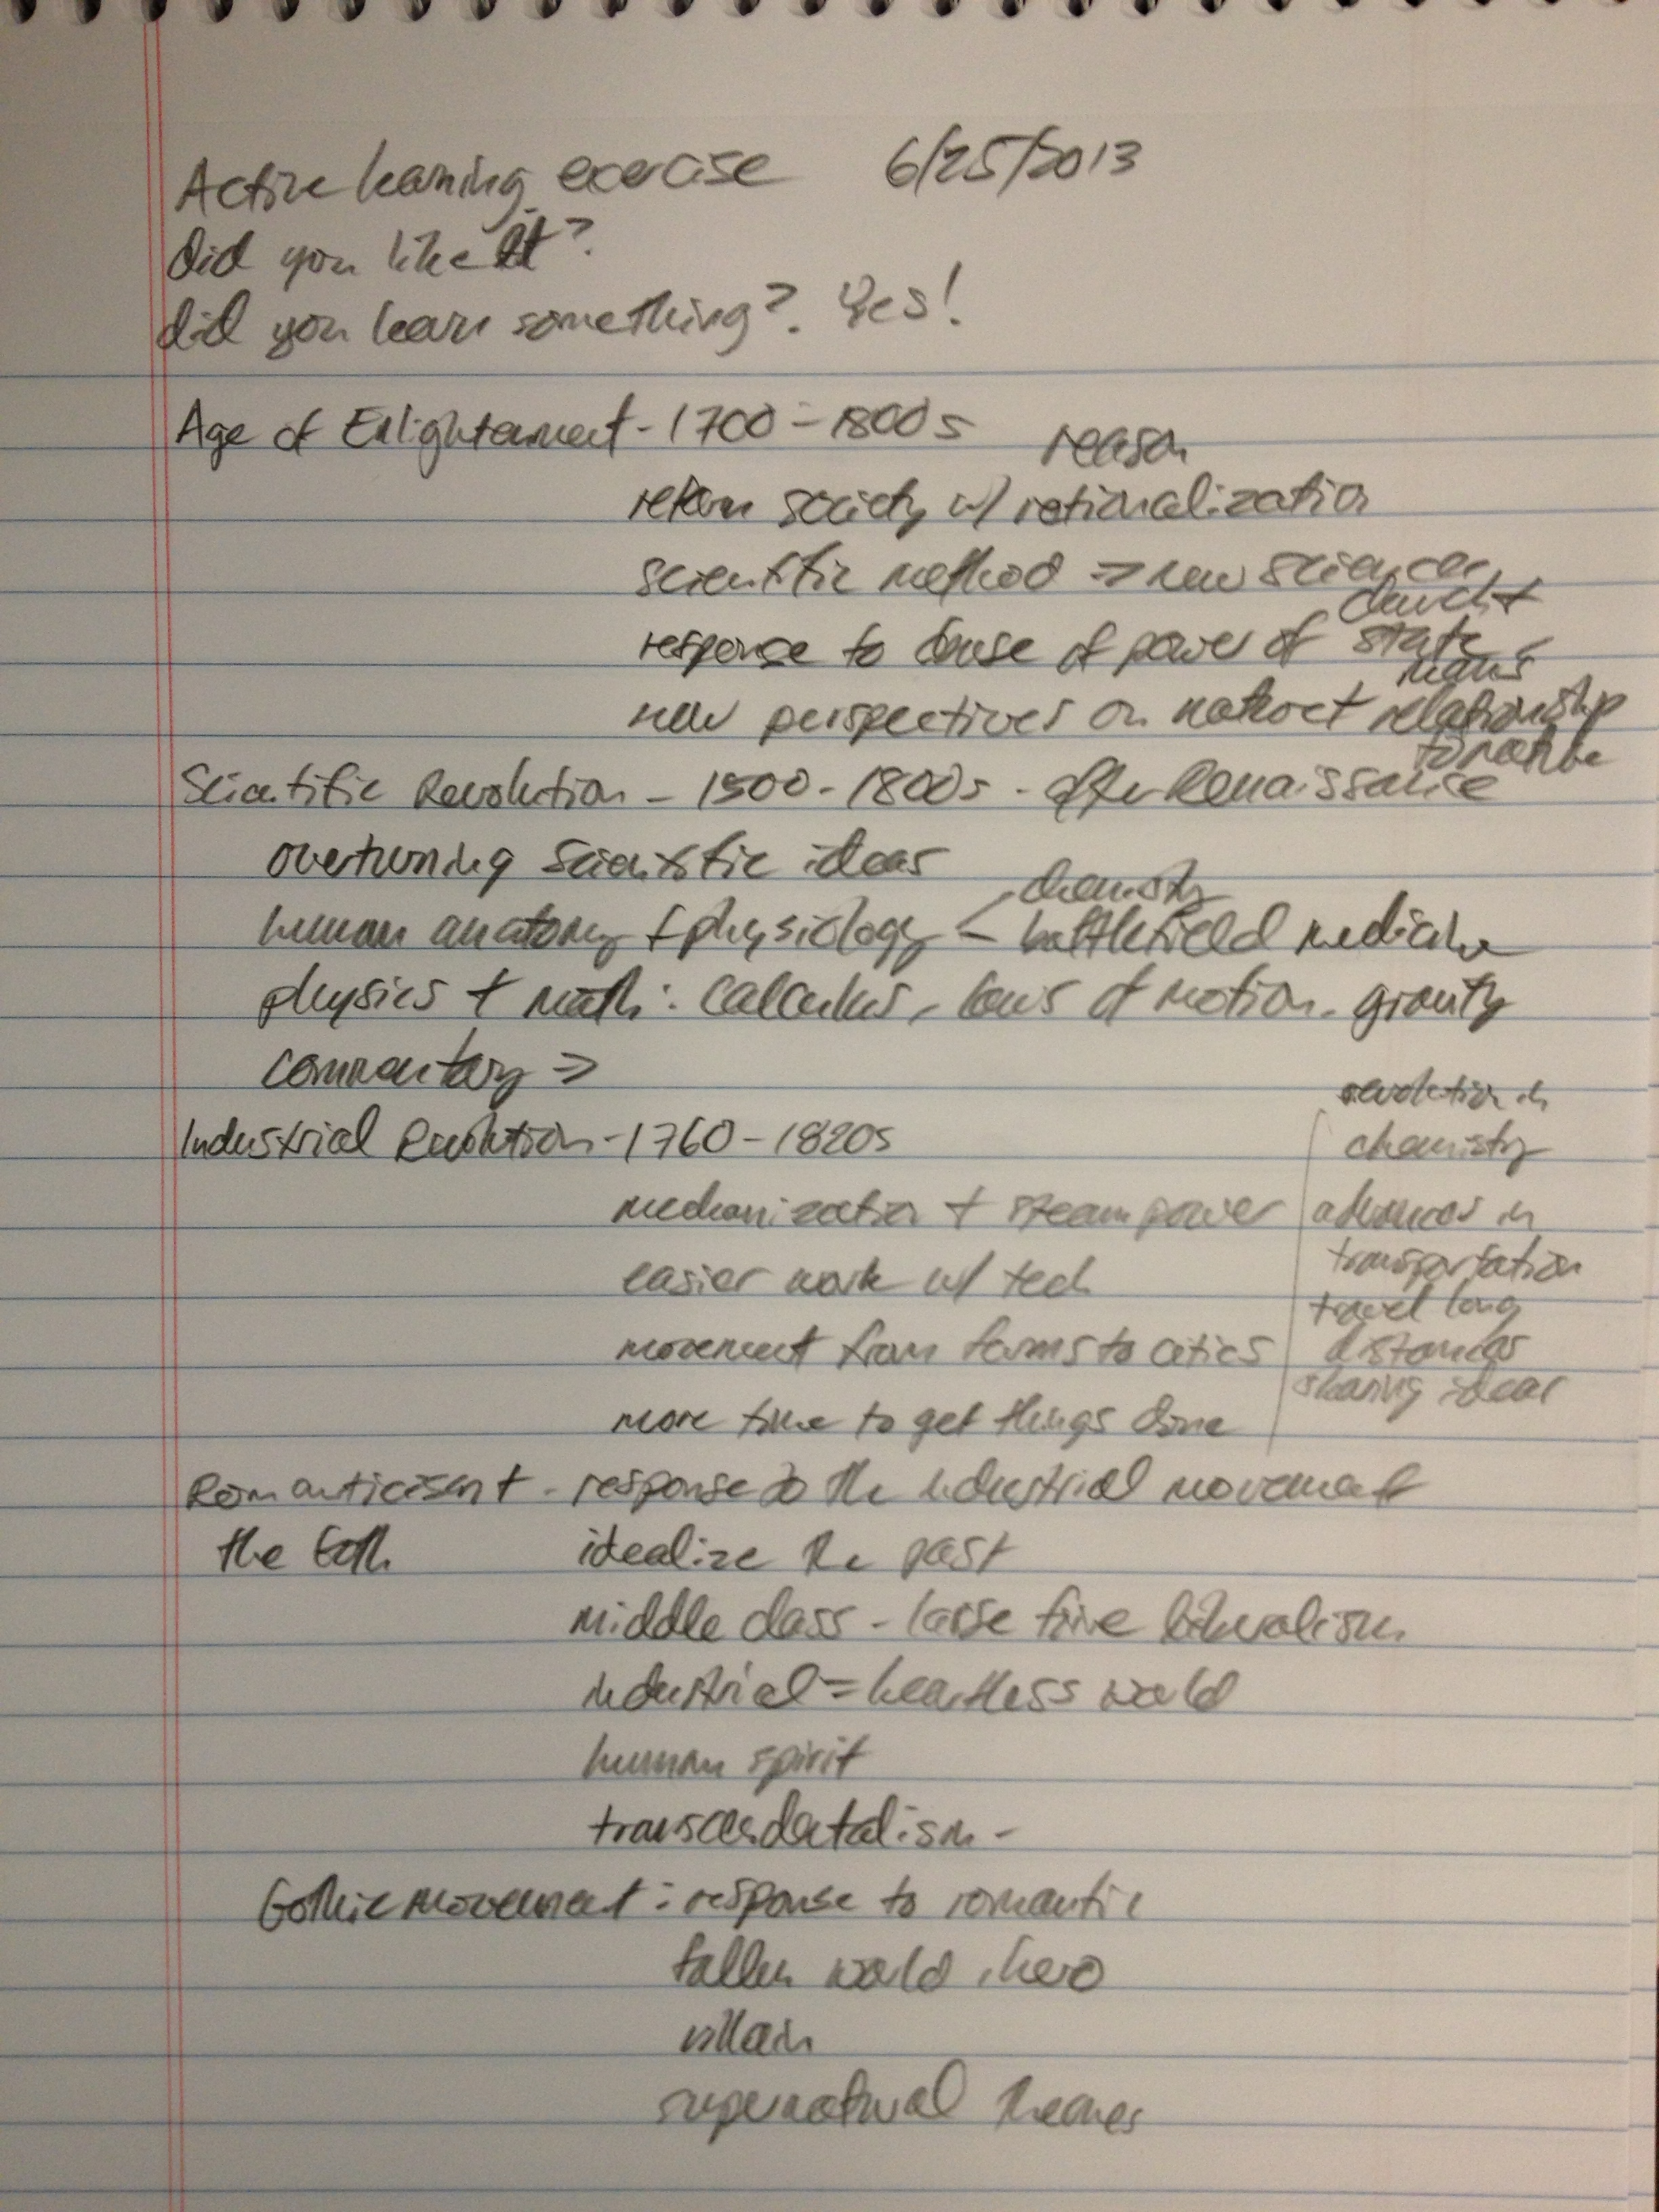 Active learning exercise 6/25/2013
did you like it?
did you learn something? Yes!
Age of Enlightenment - 1700 - 1800s
reason
reform society w/ rationalization
scientific method => new sciences
church +
response to abuse of power of state
man's
new perspectives on relationship
to nature
Scientific Revolution - 1500 - 1800s - after Renaissance
overturning scientific ideas
chemistry
human anatomy + physiology - battlefield medicine
physics + math: calculus, laws of motion, gravity
commentary =>
revolution in
Industrial Revolution - 1760 - 1820s
chemistry
mechanization + steam power
advances in
transportation
easier work w/ tech
travel long
movement from farms to cities
distances
sharing ideas
more time to get things done
Romanticism + - response to the industrial movement
the Goth idealize the past
middle class - laisse faire liberalism
industrial = heartless world
human spirit
transcendentalism -
Gothic movement: response to romantic
fallen world, hero
villain
supernatural themes